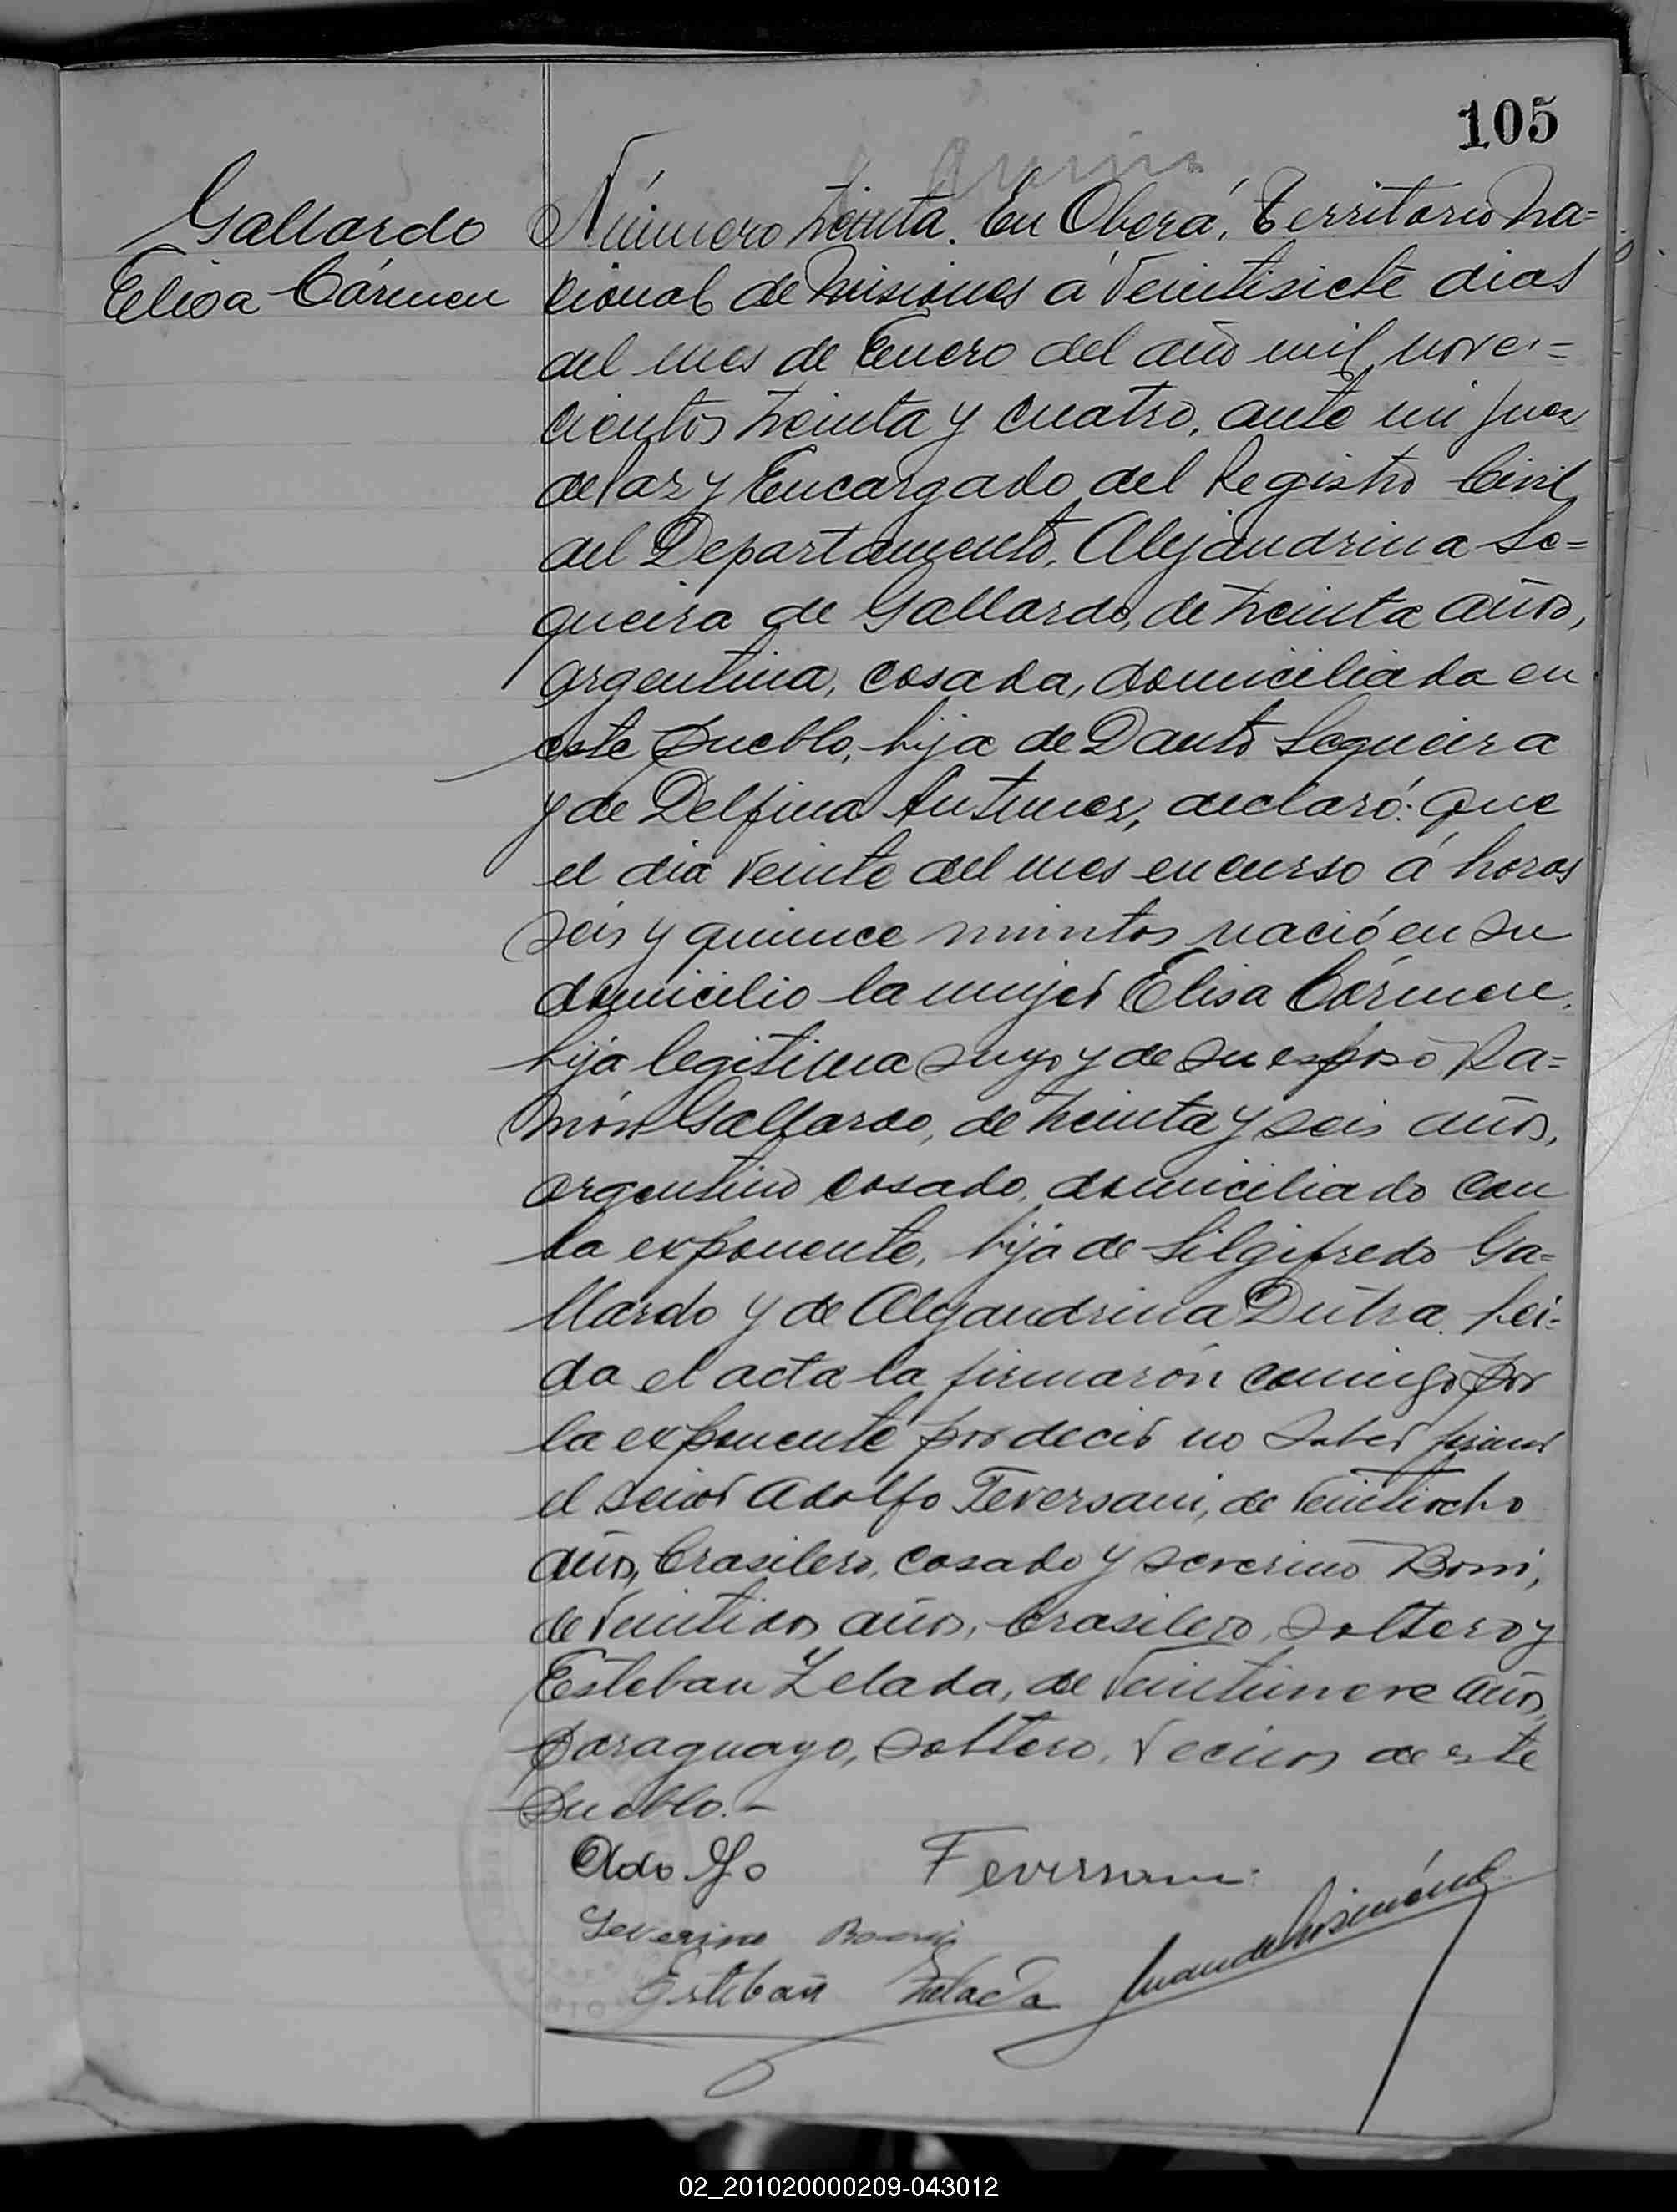 105
Gallardo
Elisa Cármen
Número treinta. En Oberá, Territorio Na=
cional de Misiones á veintisiete dias
del mes de Enero del año mil nove=
cientos treinta y cuatro, ante mi Juez
de Paz y Encargado del Registro Civil
del Departamento, Alejandrina Se=
queira de Gallardo, de treinta años,
argentina, casada, domiciliada en
este pueblo, hija de Danto Sequeira
y de Delfina Antunez, declaró: que
el dia veinte del mes en curso á horas
seis y quince minutos nació en su
domicilio la mujer Elisa Cármen,
hija legitima suya y de su esposo Ra=
món Gallardo, de treinta y seis años,
argentino casado, domiciliado con
la exponente, hijo de Silgifredo Ga=
llardo y de Alejandrina Dutra. Lei=
da el acta la firmarón comigo por
la exponente por decir no saber firmar
el señor Adolfo Feversani, de veintiocho
años, brasilero, casado y Severino Boni,
de veintidos años, brasilero, soltero y
Esteban Zelada, de veintinueve años,
paraguayo, soltero, vecinos de este
pueblo.-
Adolfo Feversani
Severino Boni
Esteban Zelada